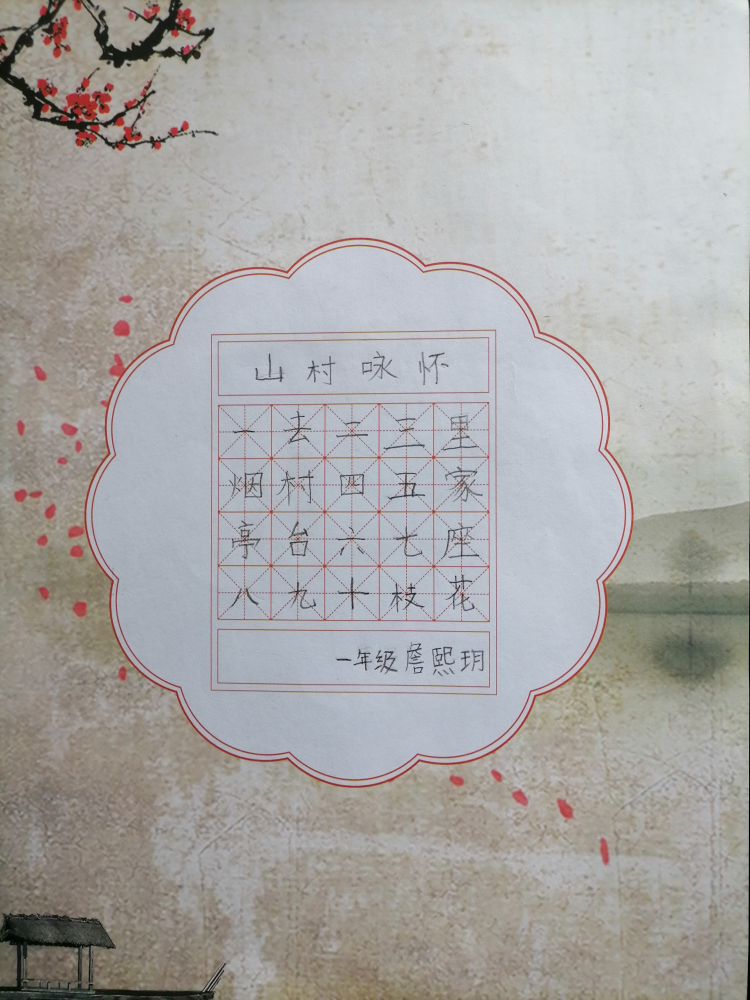 山村咏怀
一去二三里
烟村四五家
亭台六七座
八九十枝花
一年级詹熙玥